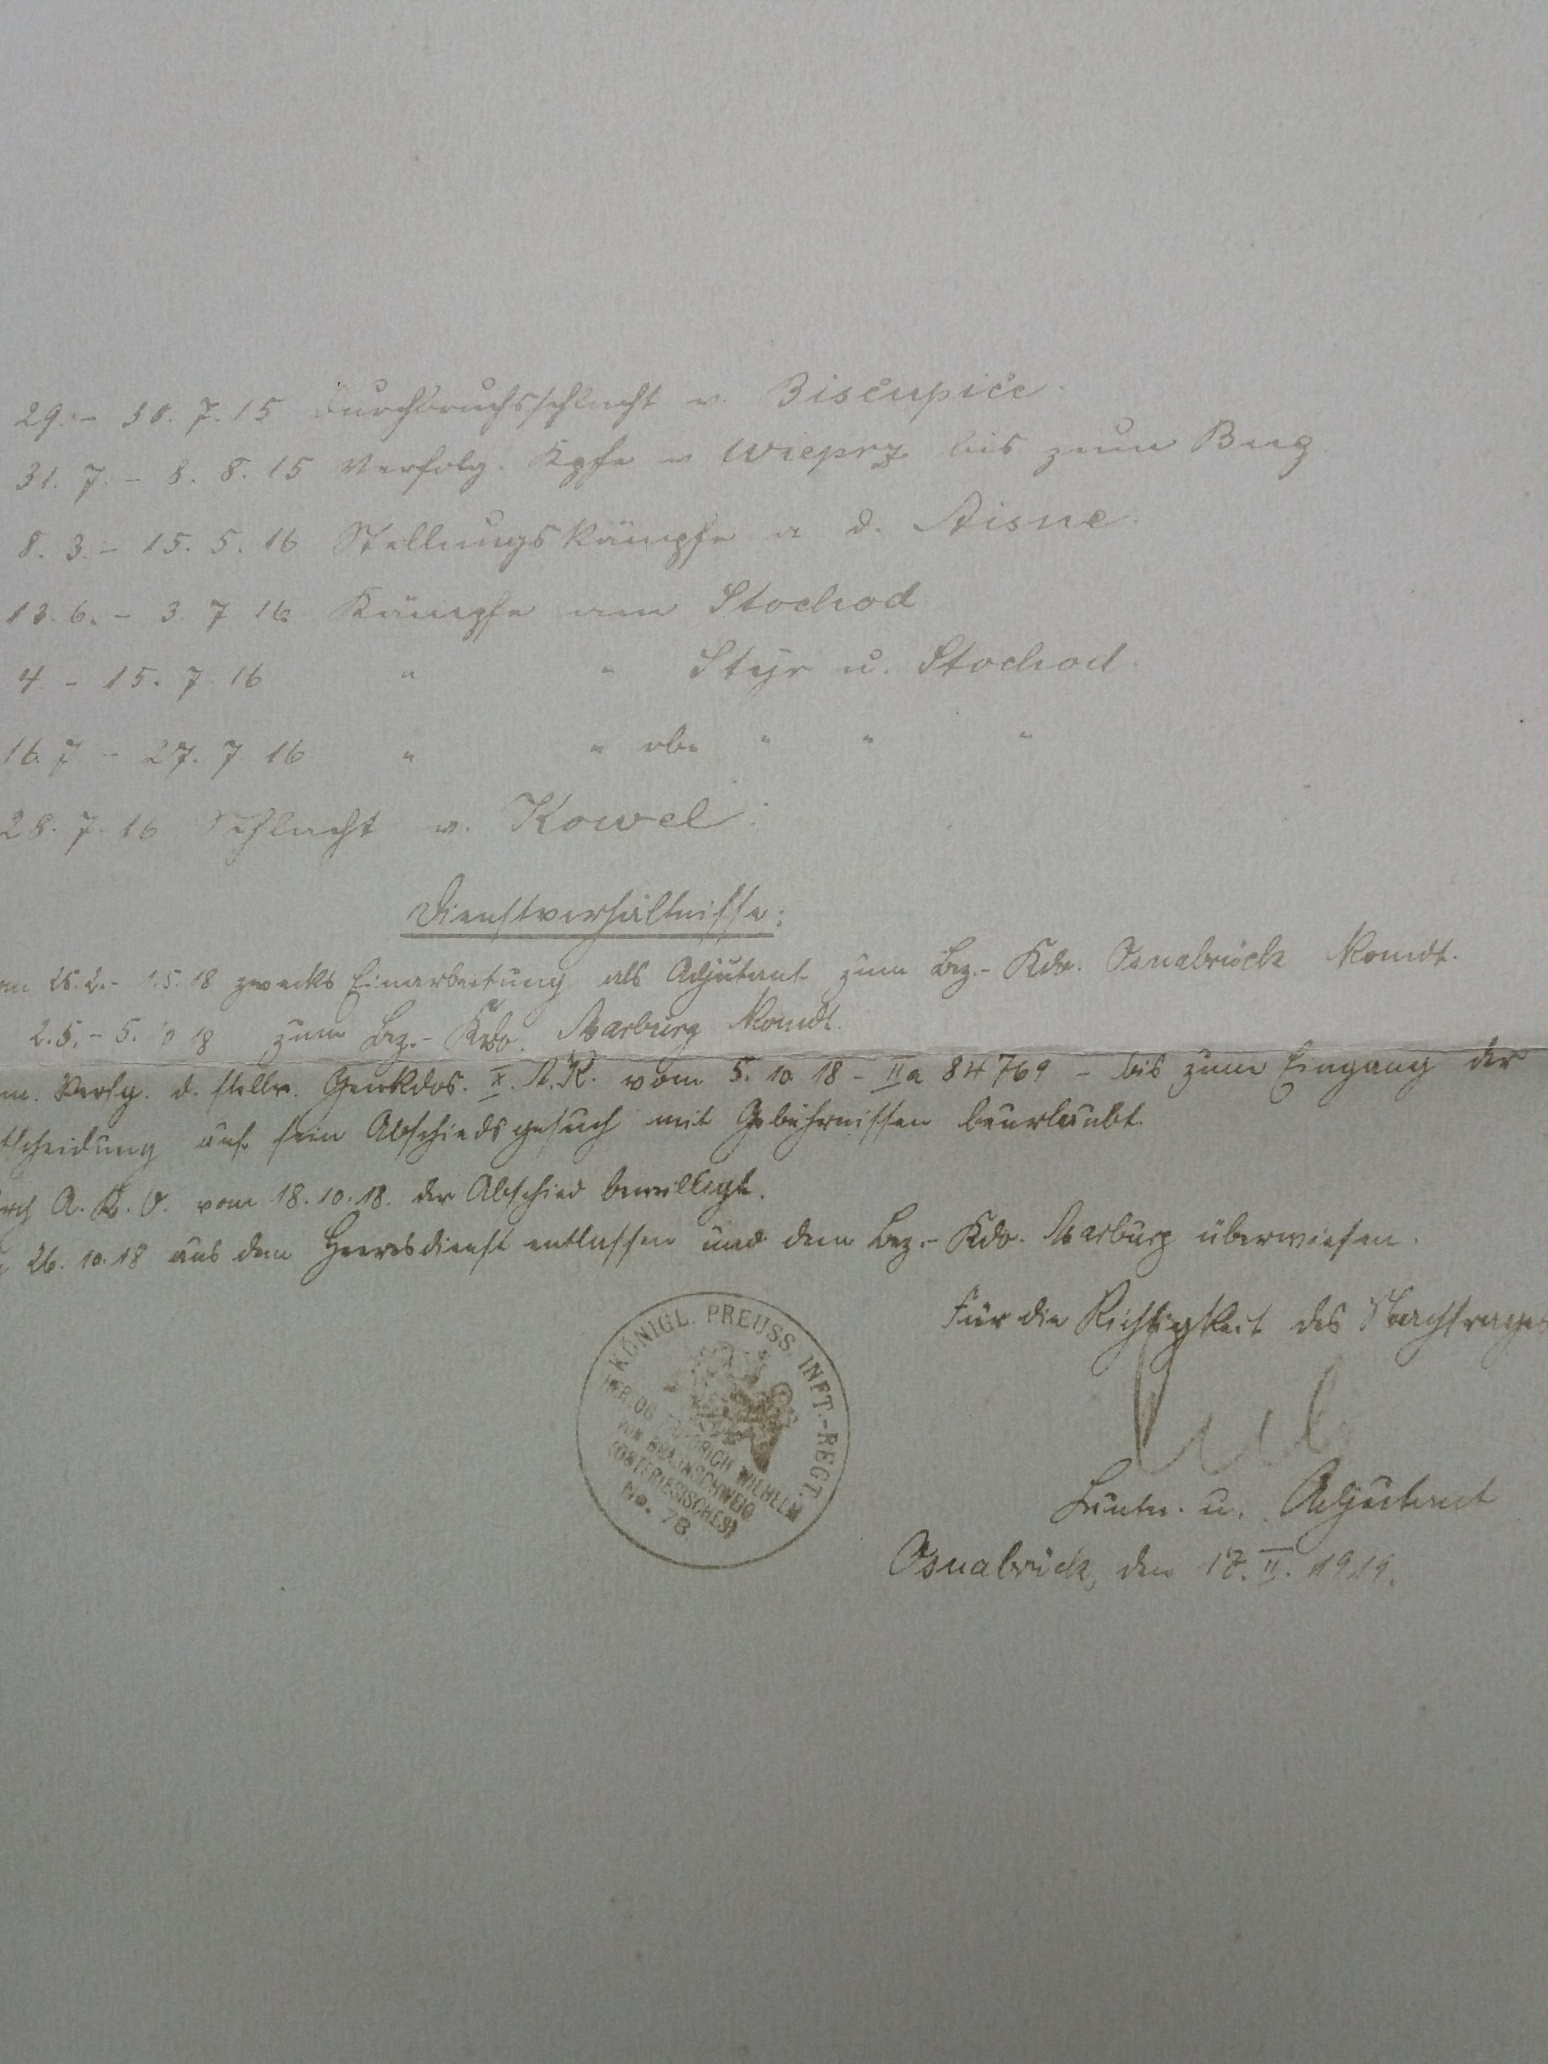 29. - 30. 7. 15 Durchbruchsschlacht v. Biscupice.
31. 7. - 8. 8. 15 Verfolg. Kpfe v Wieprz bis zum Bug.
8. 3. - 15. 5. 16 Stellungskämpfe a d. Aisne.
13. 6. - 3. 7 16 Kämpfe am Stochod
4 - 15. 7. 16 " " Styr u. Stochod.
16. 7 - 27. 7. 16 " " ob. " " "
28. 7. 16 Schlacht v. Kowel.
Dienstverhältnisse:
25. 2. - 1. 5. 18 zwecks Einarbeitung als Adjutant zum Bez.- Kdo. Osnabrück Komdt.
2. 5. - 5. 10 18 zum Bez.- Kdo. Marburg Komdt.
m. Verfg. d. stellv. Genkdos. X. A. K. vom 5. 10. 18 - IIa 84769 - bis zum Eingang der
tscheidung auf sein Abschiedsgesuch mit Gebührnissen beurlaubt.
rch A. K. O. vom 18. 10. 18. der Abschied bewilligt.
26. 10. 18 aus dem Heeresdienst entlassen und dem Bez.- Kdo. Marburg überwiesen.
Für die Richtigkeit des Nachtrages
Leutn. u. Adjutant
Osnabrück, den 17. II. 1919.
KÖNIGL. PREUSS. INFT.-REGT.
HERZOG FRIEDRICH WILHELM
VON BRAUNSCHWEIG
(OSTFRIESISCHES)
No. 78.